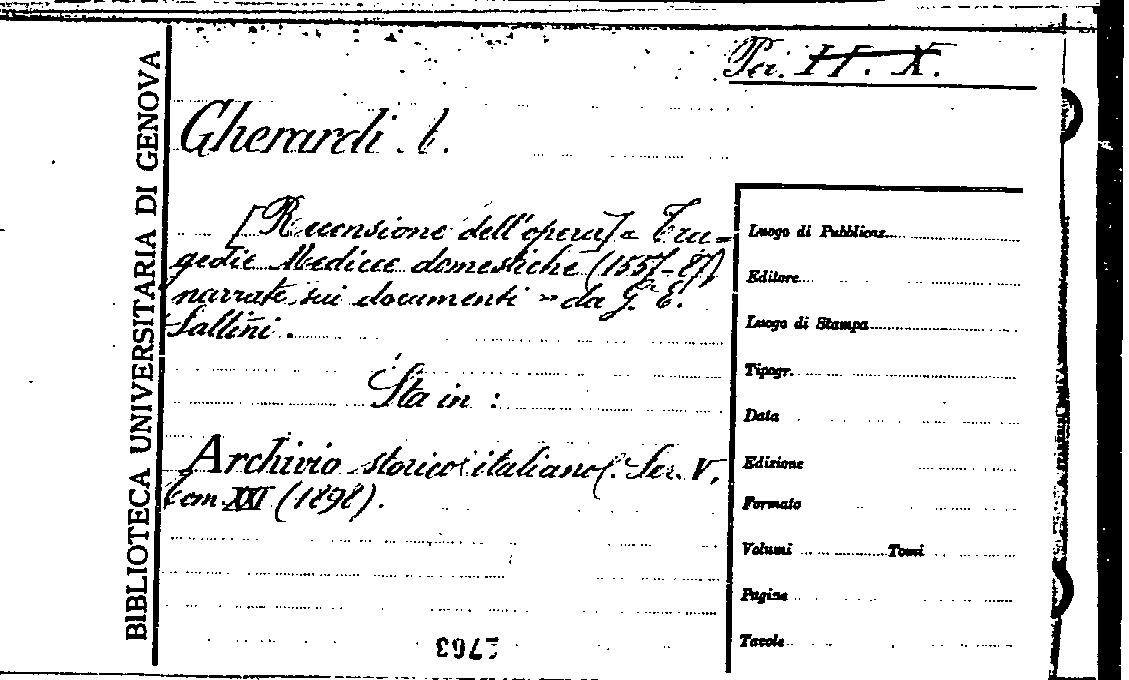 BIBLIOTECA UNIVERSITARIA DI GENOVA
Per. II. X.
Gherardi. C.
[Recensione dell'opera] = Tra=
gedie Medicee domestiche (1557-87)
narrate sui documenti" da G. E.
Saltini.
Sta in :
Archivio storico italiano. Ser. V.
tom. XXI (1898).
Luogo di Pubblicaz.
Editore
Luogo di Stampa
Tipogr.
Data
Edizione
Formato
Volumi Tomi
Pagine
Tavole
1763